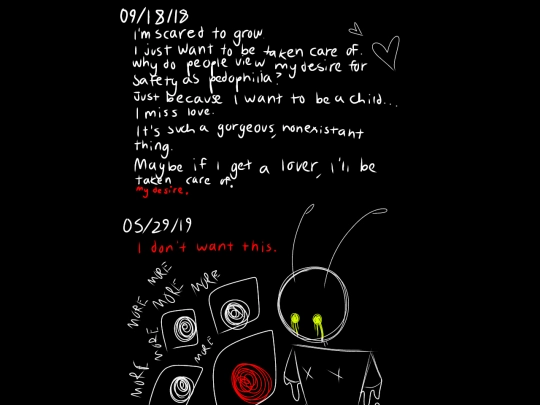 09/18/18
i'm scared to grow
I just want to be taken care of.
why do people view my desire for
safety as pedophilia?
Just because I want to be a child...
I miss love.
It's such a gorgeous, nonexistant
thing.
Maybe if I get a lover, i'll be
taken care of.
my desire.
05/29/19
I don't want this.
MORE
MORE
MORE
MORE
MORE
MORE
MORE
MORE